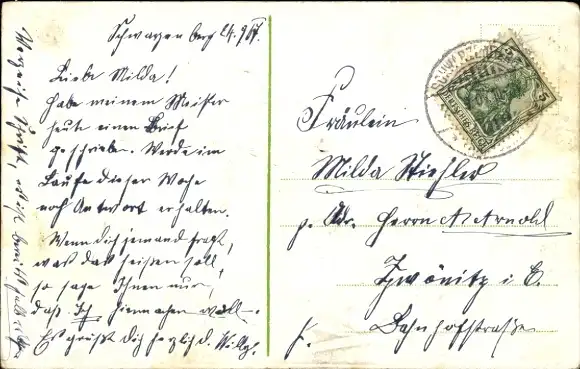 Schwarzenberg 24.9.07.
Liebe Milda!
Habe meinem Meister
heute einen Brief
geschrieben. Werde im
Laufe dieser Woche
noch Antwort erhalten.
Wenn dich jemand fragt,
was das heißen soll,
so sage Ihnen nur,
daß Ich hinmachen will.
Es grüßt dich herzlich d. Willy.
Fräulein
Milda Stiehler
p. Adr. Herrn A. Arnold
Zwönitz i. E.
Bahnhofstraße